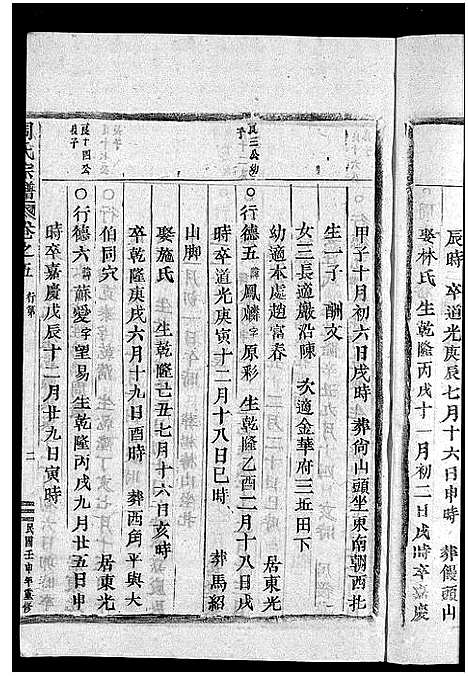 辰時 卒道光庚辰七月十六日申時 葬饅頭山
娶林氏 生乾隆丙戌十一月初二日戌時卒嘉慶
甲子十月初六日戌時 葬尙山頭坐東南朝西扎
生一子 酬文
女三長適嚴沿陳 次適金華府三近田下
幼適本處趙富春 居東光
良三公幼子
○行德五諱鳳麟字原彩 生乾隆乙酉二月十八日戌
時卒道光庚寅十二月十八日巳時 葬馬紹
山脚
娶施氏 生乾隆己丑七月十六日亥時
卒乾隆庚戌六月十九日酉時 葬西角平與大
伯同穴 居東光
良十四公長子
○行德六諱蘇愛字望易 生乾隆丙戌九月廿五日申
時卒嘉慶戊辰十二月廿九日寅時
周氏宗譜 卷之五 行第 二 民國壬申年重修